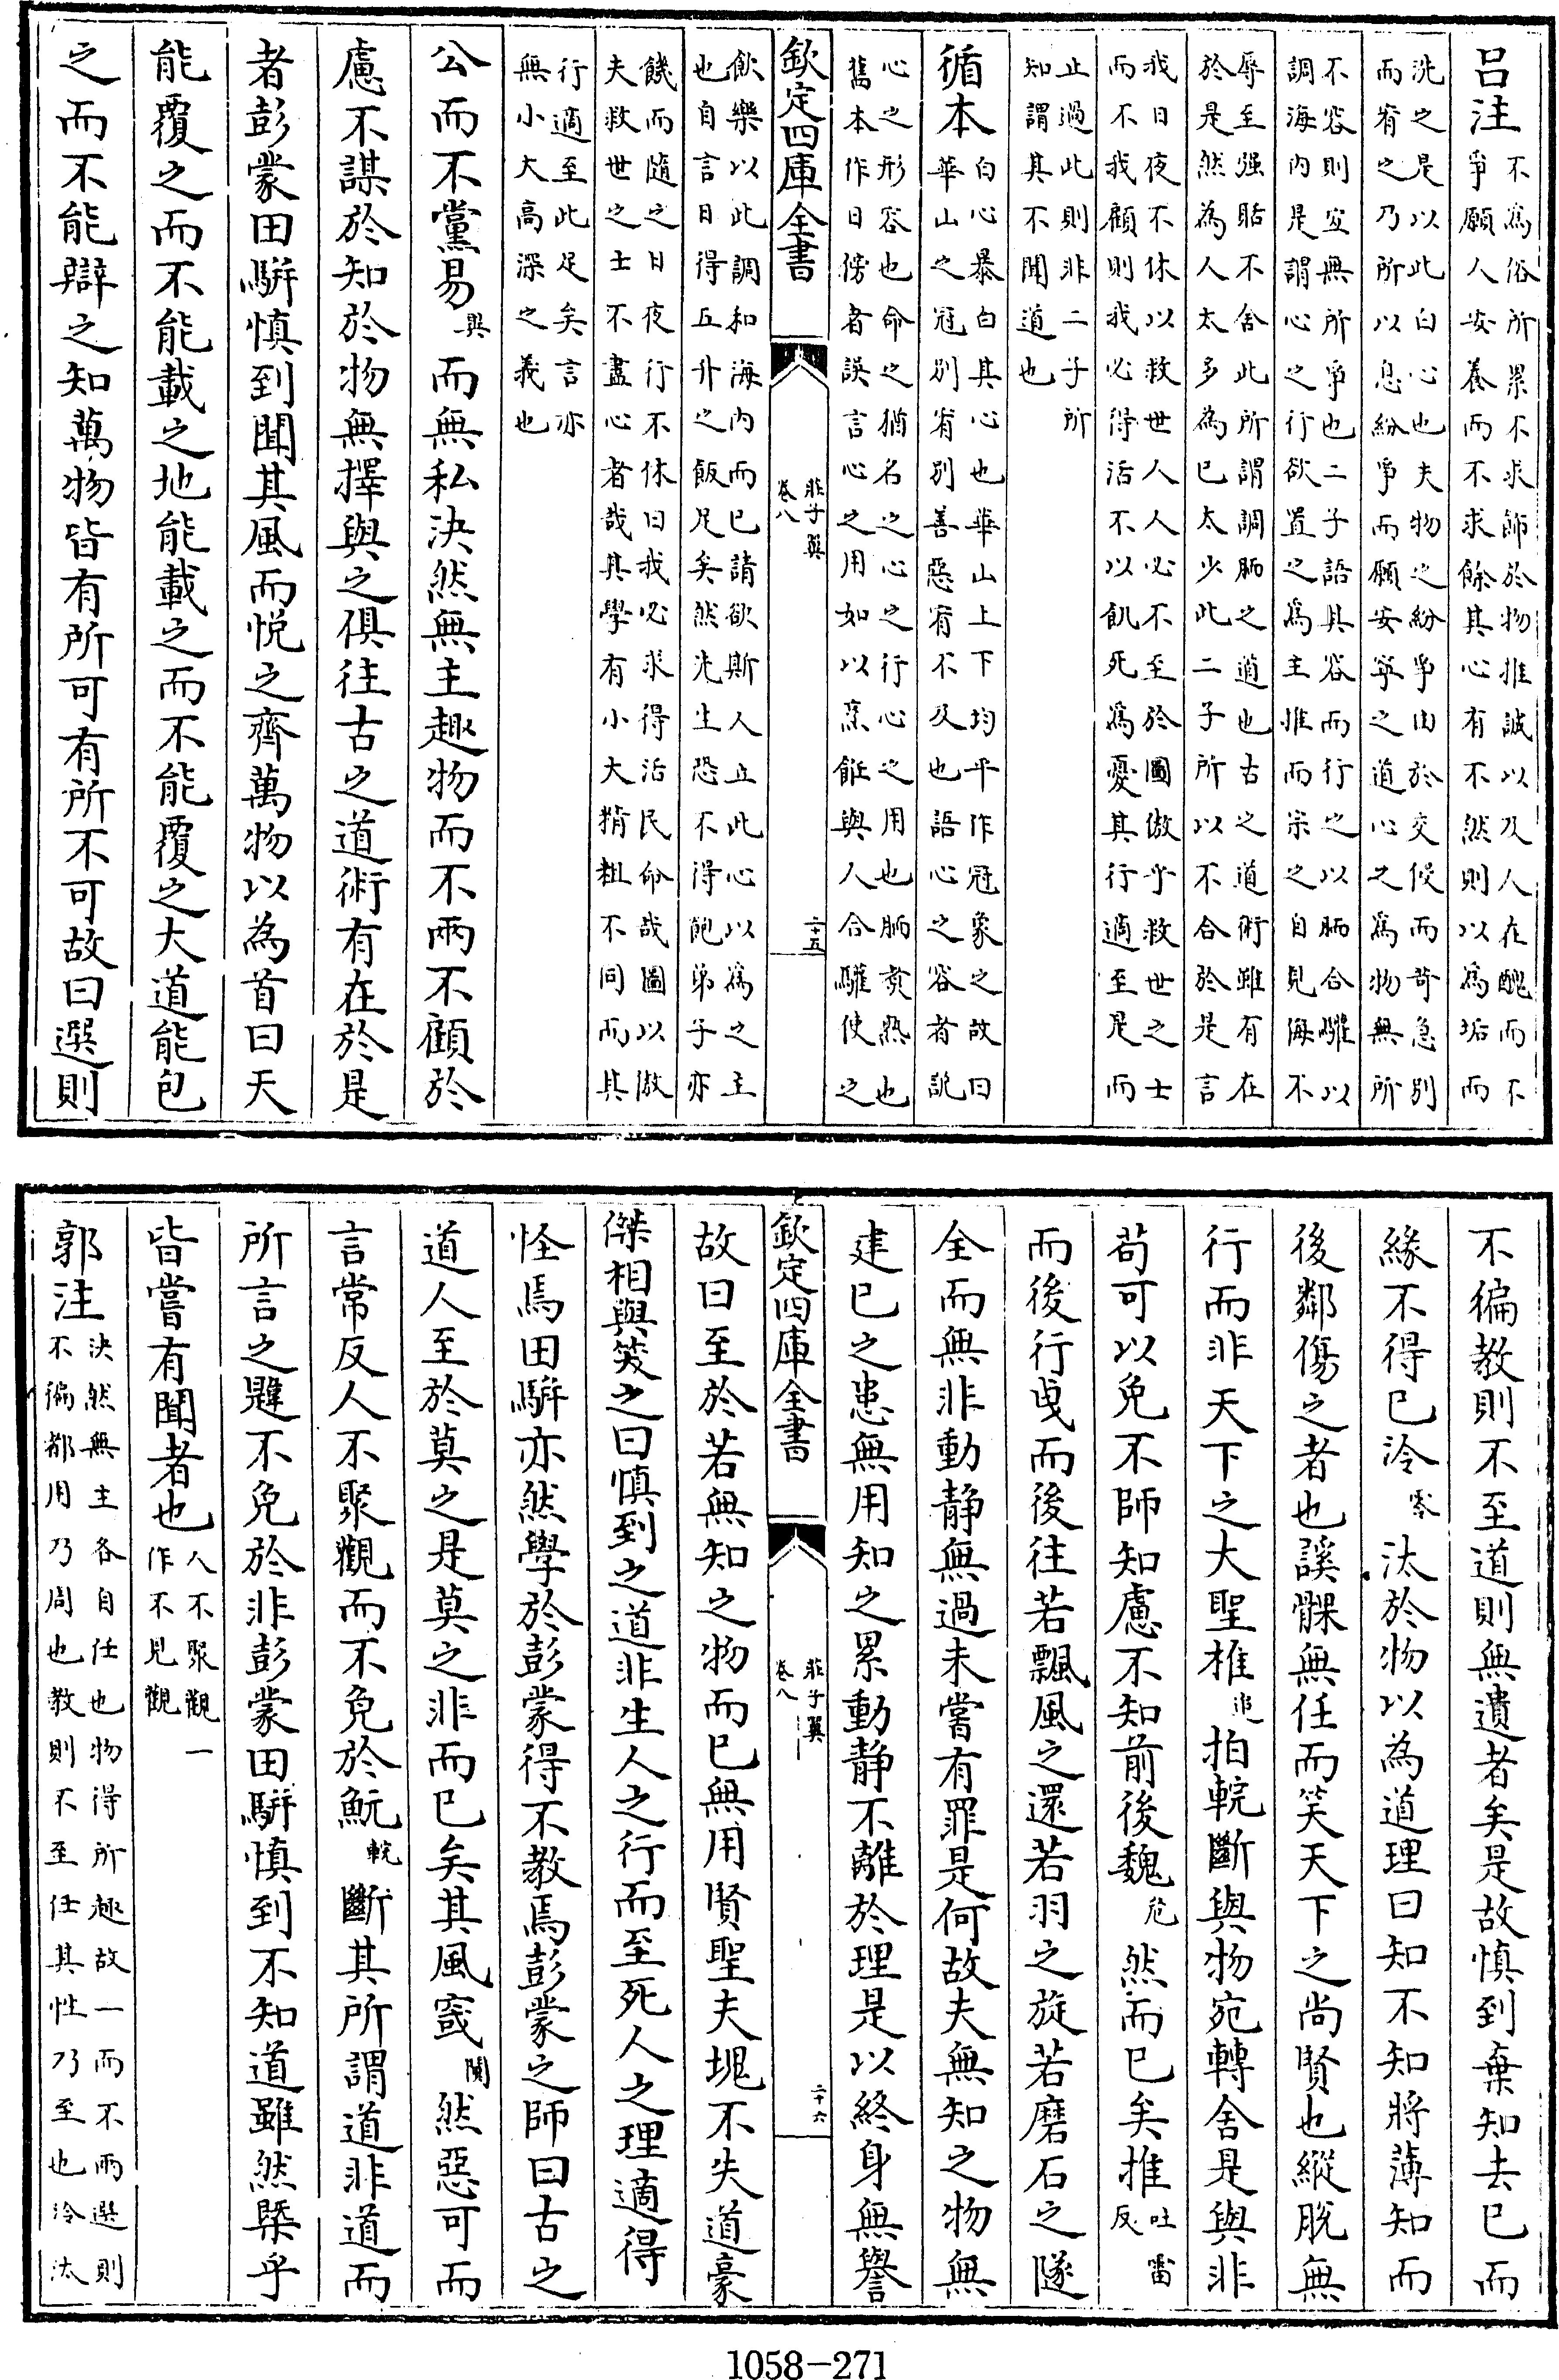 呂注不爲俗所累不求飾於物推誠以及人在醜而不
爭願人安養而不求餘其心有不然則以爲垢而
洗之是以此白心也夫物之紛爭由於交侵而苛急別
而宥之乃所以息紛爭而願安寧之道心之爲物無所
不容則安無所爭也二子語其容而行之以胹合驩以
調海内是謂心之行欲置之爲主推而宗之自見侮不
辱至强聒不舍此所謂調胹之道也古之道術雖有在
於是然為人太多為已太少此二子所以不合於是言
我日夜不休以救世人人必不至於圖傲乎救世之士
而不我顧則我必得活不以飢死爲憂其行適至是而
止過此則非二子所
知謂其不聞道也
循本白心暴白其心也華山上下均平作冠象之故曰
華山之冠別宥別善惡宥不及也語心之容者說
心之形容也命之猶名之心之行心之用也胹煑熟也
舊本作日傍者誤言心之用如以烹飪與人合驩使之
欽定四庫全書
莊子翼
卷八
二十五
飲樂以此調和海内而已請欲斯人立此心以爲之主
也自言日得五升之飯足矣然先生恐不得飽弟子亦
饑而隨之日夜行不休曰我必求得活民命哉圖以傲
夫救世之士不盡心者哉其學有小大精粗不同而其
行適至此足矣言亦
無小大高深之義也
公而不黨易異而無私決然無主趣物而不兩不顧於
慮不謀於知於物無擇與之俱往古之道術有在於是
者彭蒙田騈慎到聞其風而悦之齊萬物以為首曰天
能覆之而不能載之地能載之而不能覆之大道能包
之而不能辯之知萬物皆有所可有所不可故曰選則
不徧教則不至道則無遺者矣是故慎到棄知去已而
緣不得已泠零汰於物以為道理曰知不知將薄知而
後鄰傷之者也謑髁無任而笑天下之尚賢也縱脫無
行而非天下之大聖椎追拍輐斷與物宛轉舍是與非
苟可以免不師知慮不知前後魏危然而已矣推吐雷反
而後行曳而後往若飄風之還若羽之旋若磨石之隧
全而無非動靜無過未嘗有罪是何故夫無知之物無
建已之患無用知之累動靜不離於理是以終身無譽
欽定四庫全書
莊子翼
卷八
二十六
故曰至於若無知之物而已無用賢聖夫塊不失道豪
傑相與笑之曰慎到之道非生人之行而至死人之理適得
怪焉田騈亦然學於彭蒙得不教焉彭蒙之師曰古之
道人至於莫之是莫之非而已矣其風窢閴然惡可而
言常反人不聚觀而不免於魭輐斷其所謂道非道而
所言之韙不免於非彭蒙田騈慎到不知道雖然槩乎
皆嘗有聞者也人不聚觀一
作不見觀
郭注決然無主各自任也物得所趣故一而不兩選則
不徧都用乃周也教則不至任其性乃至也泠汰
1058-271